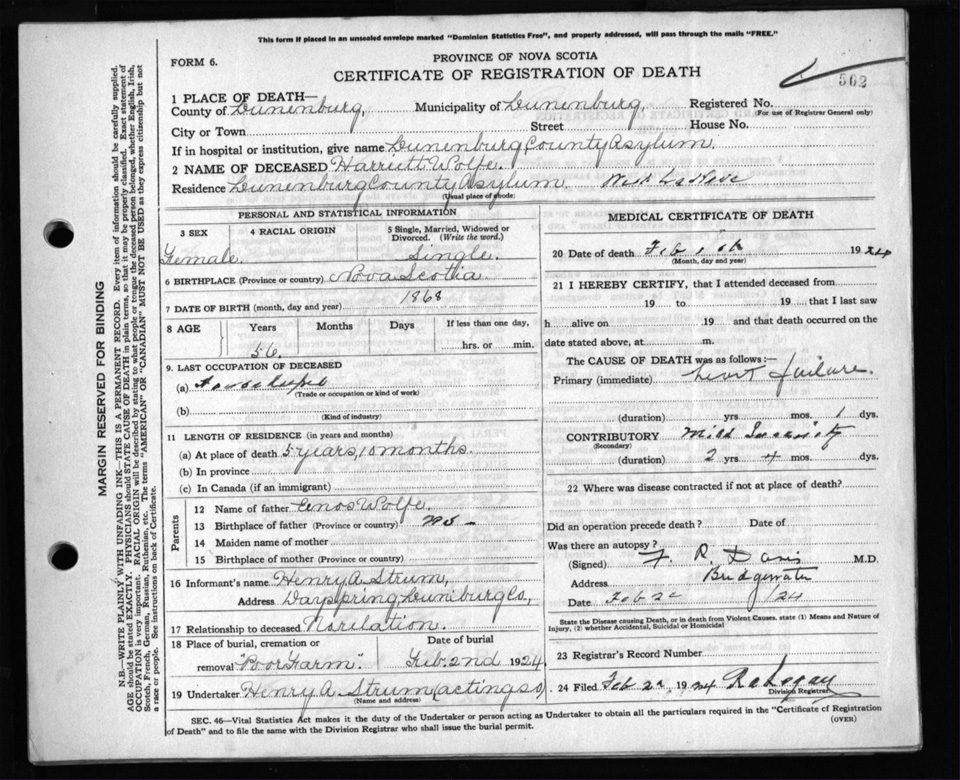 This form if placed in an unsealed envelope marked "Dominion Statistics Free", and properly addressed, will pass through the mails "FREE."
FORM 6.
PROVINCE OF NOVA SCOTIA
CERTIFICATE OF REGISTRATION OF DEATH
562
1 PLACE OF DEATH—
County of Lunenburg, Municipality of Lunenburg, Registered No.
(For use of Registrar General only)
City or Town Street House No.
If in hospital or institution, give name Lunenburg County Asylum.
2 NAME OF DECEASED Harriett Wolfe.
Residence Lunenburg County Asylum. West LaHave
(Usual place of abode)
PERSONAL AND STATISTICAL INFORMATION
3 SEX 4 RACIAL ORIGIN 5 Single, Married, Widowed or Divorced. (Write the word.)
Female. Single.
6 BIRTHPLACE (Province or country) Nova Scotia
7 DATE OF BIRTH (month, day and year) 1868
8 AGE Years Months Days If less than one day,
56. hrs. or min.
9. LAST OCCUPATION OF DECEASED
(a) Housekeeper
(Trade or occupation or kind of work)
(b)
(Kind of industry)
11 LENGTH OF RESIDENCE (in years and months)
(a) At place of death 5 years, 10 months.
(b) In province
(c) In Canada (if an immigrant)
Parents
12 Name of father Enos Wolfe.
13 Birthplace of father (Province or country) NS -
14 Maiden name of mother
15 Birthplace of mother (Province or country)
16 Informant's name Henry A. Strum,
Address Dayspring, Luniburg Co,
17 Relationship to deceased No relation.
18 Place of burial, cremation or removal Date of burial
"Poor Farm". Feb. 2nd 1924.
19 Undertaker Henry A. Strum (acting so)
(Name and address)
MEDICAL CERTIFICATE OF DEATH
20 Date of death Feb 1 1924
(Month, day and year)
21 I HEREBY CERTIFY, that I attended deceased from
19 to 19 that I last saw
h alive on 19 and that death occurred on
date stated above, at m.
The CAUSE OF DEATH was as follows:—
Primary (immediate) heart failure.
(duration) yrs. mos. 1 dys.
CONTRIBUTORY Mild Insanity
(Secondary)
(duration) 2 yrs 4 mos. dys.
22 Where was disease contracted if not at place of death?
Did an operation precede death? Date of
Was there an autopsy?
(Signed) F. R. Davis M.D.
Address Bridgewater
Date Feb 22 /24
State the Disease causing Death, or in death from Violent Causes. state (1) Means and Nature of Injury, (2) whether Accidental, Suicidal or Homicidal
23 Registrar's Record Number
24 Filed Feb 1924
Division Registrar
SEC. 46—Vital Statistics Act makes it the duty of the Undertaker or person acting as Undertaker to obtain all the particulars required in the "Certificate of Registration
of Death" and to file the same with the Division Registrar who shall issue the burial permit. (OVER)
MARGIN RESERVED FOR BINDING
N.B.—WRITE PLAINLY WITH UNFADING INK—THIS IS A PERMANENT RECORD. Every item of information should be carefully supplied.
AGE should be stated EXACTLY. PHYSICIANS should STATE CAUSE OF DEATH in plain terms, so that it may be properly classified. Exact statement of
OCCUPATION is very important. RACIAL ORIGIN will be described by stating to what people or tongue the deceased person belonged, whether English, Irish,
Scotch, French, German, Russian, Ruthenian, etc. The terms "AMERICAN" OR "CANADIAN" MUST NOT BE USED as they express citizenship but not
a race or people. See instructions on back of Certificate.